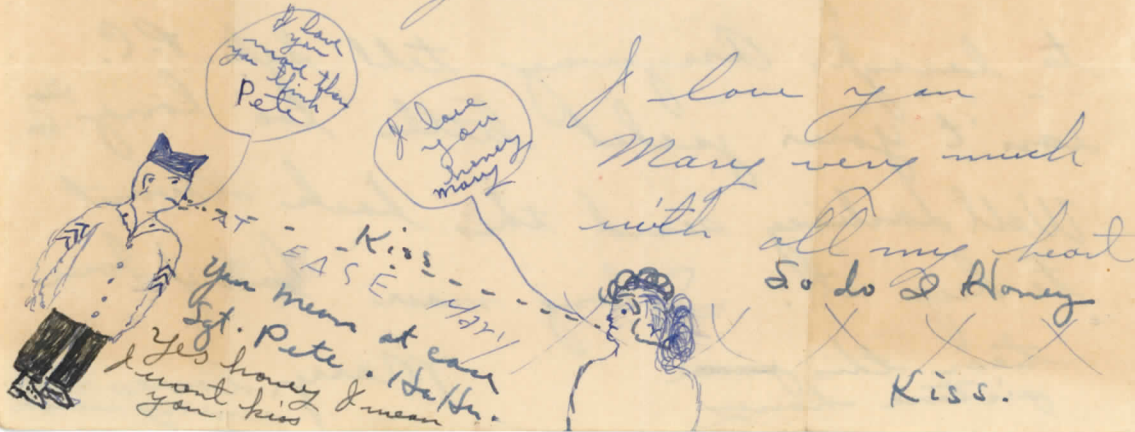 I love
you
more than
you think
Pete
I love
you
honey
mary
I love you
Mary very much
with all my heart
So do I Honey
X X X X X X
Kiss.
Kiss
AT EASE MARY
You mean at ease
Sgt. Pete. Ha Ha.
Yes honey I mean
I want kiss
you